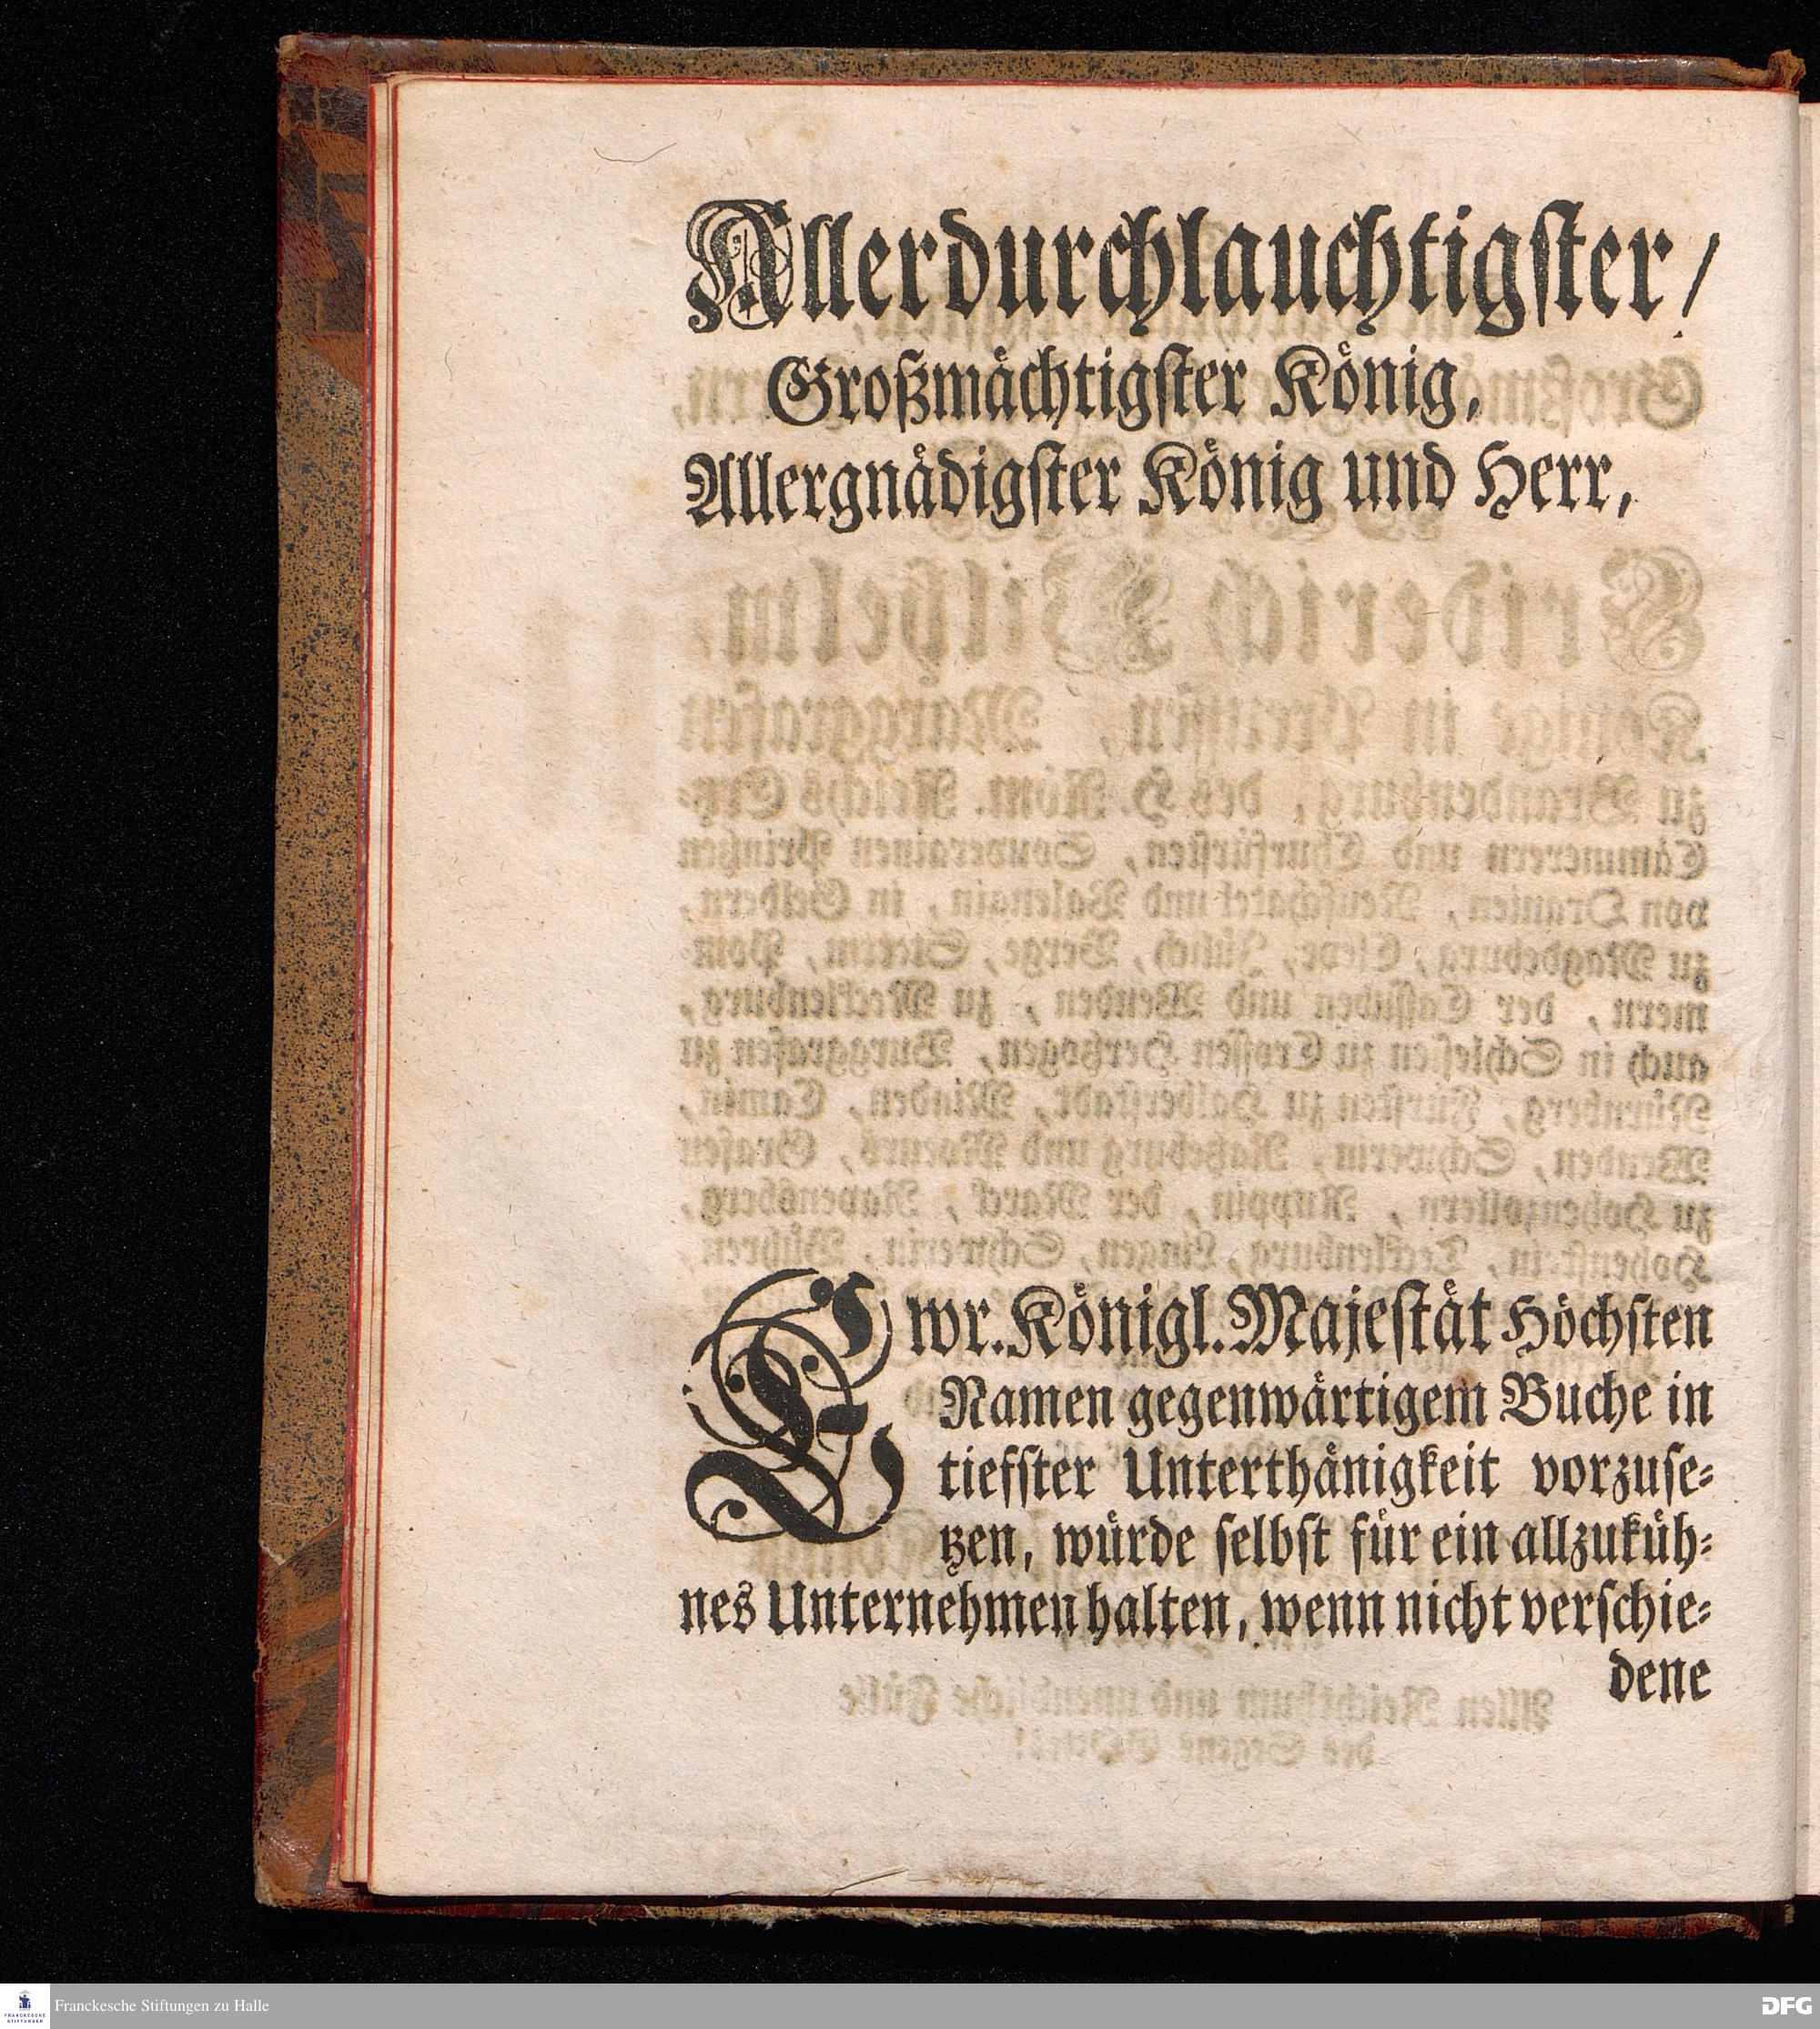 Allerdurchlauchtigster/
Großmächtigster König,
Allergnädigster König und Herr,
Ewr. Königl. Majestät Höchsten
Namen gegenwärtigem Buche in
tiefster Unterthänigkeit vorzuse-
tzen, würde selbst für ein allzuküh-
nes Unternehmen halten, wenn nicht verschie-
dene
Franckesche Stiftungen zu Halle
DFG